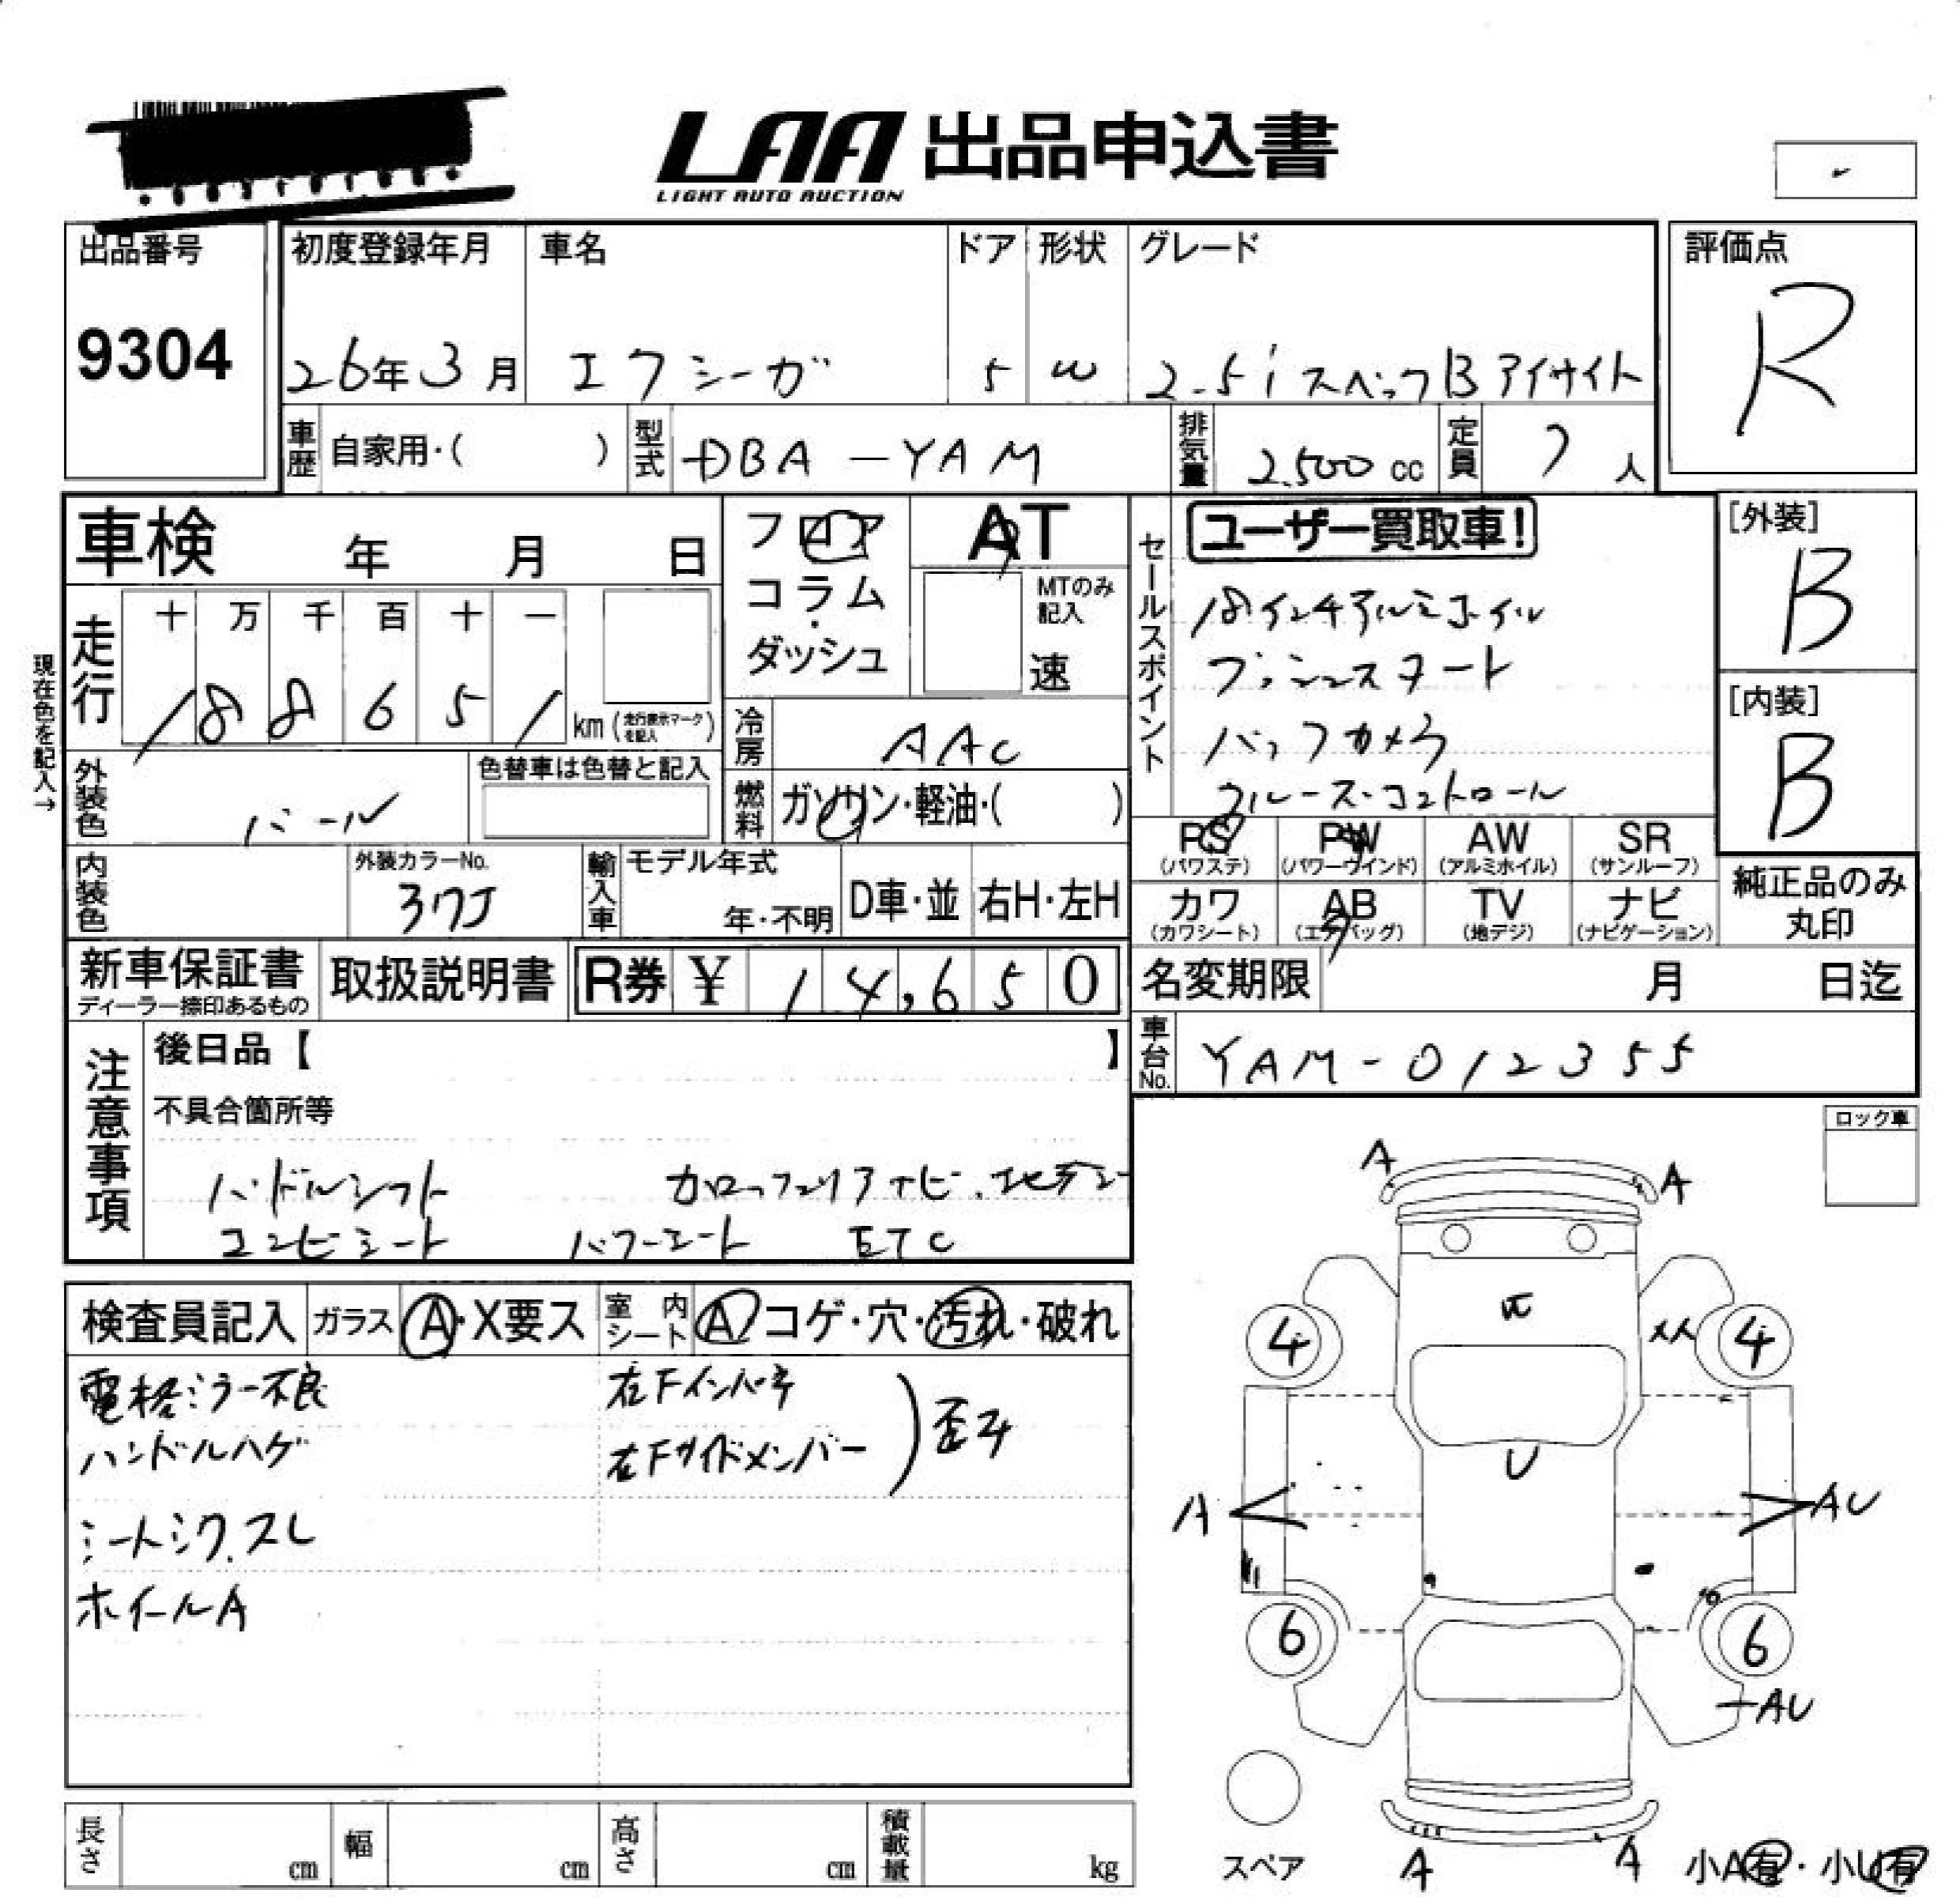 LAA 出品申込書
LIGHT AUTO AUCTION
出品番号
9304
初度登録年月
26年3月
車名
エクシーガ
ドア
5
形状
W
グレード
2.5i スペックB アイサイト
評価点
R
車歴
自家用・( )
型式
DBA-YAM
排気量
2,500 cc
定員
7 人
車検 年 月 日
フロア
コラム
・
ダッシュ
AT
MTのみ
記入
速
セールスポイント
ユーザー買取車!
18インチアルミホイル
プッシュスタート
バックカメラ
クルーズ・コントロール
[外装]
B
[内装]
B
現在色を記入→
走行
十 万 千 百 十 一
1 8 8 6 5 1
km (走行表示マークを記入)
冷房
AAC
燃料
ガソリン・軽油・( )
外装色
パール
色替車は色替と記入
PS
(パワステ)
PW
(パワーウインド)
AW
(アルミホイル)
SR
(サンルーフ)
カワ
(カワシート)
AB
(エアバッグ)
TV
(地デジ)
ナビ
(ナビゲーション)
純正品のみ
丸印
内装色
外装カラーNo.
37J
輸入車
モデル年式
年・不明
D車・並
右H・左H
新車保証書
ディーラー捺印あるもの
取扱説明書
R券 ¥ 14,650
名変期限 月 日迄
車台No.
YAM-012355
注意事項
後日品【 】
不具合箇所等
パドルシフト カロッツェリアナビ.地デジ
コンビシート パワーシート ETC
ロック車
検査員記入
ガラス
A・X要ス
室内
シート
A コゲ・穴・汚れ・破れ
電格ミラー不良
ハンドルハゲ
シートシワ.スレ
ホイールA
右Fインパネ
右Fサイドメンバー
歪み
A
A
XX
4
4
U
A
AU
6
6
AU
スペア
A
A
小A有・小U有
長さ cm
幅 cm
高さ cm
積載量 kg